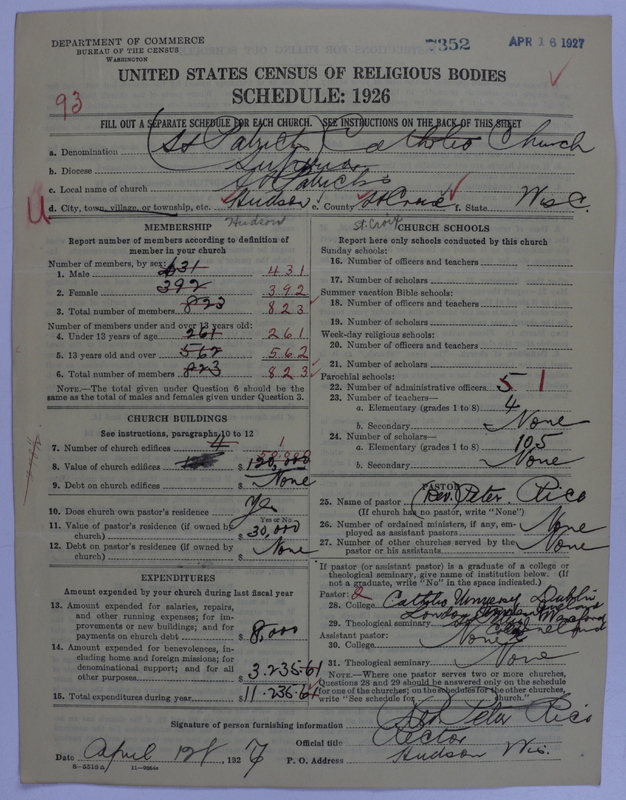 DEPARTMENT OF COMMERCE
BUREAU OF THE CENSUS
WASHINGTON
7352
APR 16 1927
UNITED STATES CENSUS OF RELIGIOUS BODIES
SCHEDULE: 1926
93
FILL OUT A SEPARATE SCHEDULE FOR EACH CHURCH. SEE INSTRUCTIONS ON THE BACK OF THIS SHEET
a. Denomination (St Patricks) Catholic Church
b. Diocese Superior
c. Local name of church St Patricks
d. City, town, village, or township, etc. Hudson e. County St Croix f. State Wis
Hudson St. Croix
MEMBERSHIP
Report number of members according to definition of member in your church
Number of members, by sex:
1. Male 431 431
2. Female 392 392
3. Total number of members 823 823
Number of members under and over 13 years old:
4. Under 13 years of age 261 261
5. 13 years old and over 562 562
6. Total number of members 823 823
NOTE.—The total given under Question 6 should be the same as the total of males and females given under Question 3.
CHURCH BUILDINGS
See instructions, paragraphs 10 to 12
7. Number of church edifices 4 1
8. Value of church edifices $ 120,000
9. Debt on church edifices $ None
10. Does church own pastor's residence Yes
Yes or No
11. Value of pastor's residence (if owned by church) $ 30,000
12. Debt on pastor's residence (if owned by church) $ None
EXPENDITURES
Amount expended by your church during last fiscal year
13. Amount expended for salaries, repairs, and other running expenses; for improvements or new buildings; and for payments on church debt $ 8,000
14. Amount expended for benevolences, including home and foreign missions; for denominational support; and for all other purposes $ 3.235.61
15. Total expenditures during year $ 11.235.61
CHURCH SCHOOLS
Report here only schools conducted by this church
Sunday schools:
16. Number of officers and teachers
17. Number of scholars
Summer vacation Bible schools:
18. Number of officers and teachers
19. Number of scholars
Week-day religious schools:
20. Number of officers and teachers
21. Number of scholars
Parochial schools:
22. Number of administrative officers 5 1
23. Number of teachers—
a. Elementary (grades 1 to 8) 4
b. Secondary None
24. Number of scholars—
a. Elementary (grades 1 to 8) 105
b. Secondary None
PASTOR
25. Name of pastor Rev. Peter Rice
(If church has no pastor, write "None")
26. Number of ordained ministers, if any, employed as assistant pastors None
27. Number of other churches served by the pastor or his assistants None
If pastor (or assistant pastor) is a graduate of a college or theological seminary, give name of institution below. (If not a graduate, write "No" in the space indicated.)
Pastor: 2
28. College Catholic University Dublin
29. Theological seminary
Assistant pastor:
30. College None
31. Theological seminary None
NOTE.—Where one pastor serves two or more churches, Questions 28 and 29 should be answered only on the schedule for one of the churches; on the schedules for the other churches, write "See schedule for church."
Signature of person furnishing information Peter Rice
Official title Rector
Date April 12 1927 P. O. Address Hudson Wis.
8—5510a 11—9884